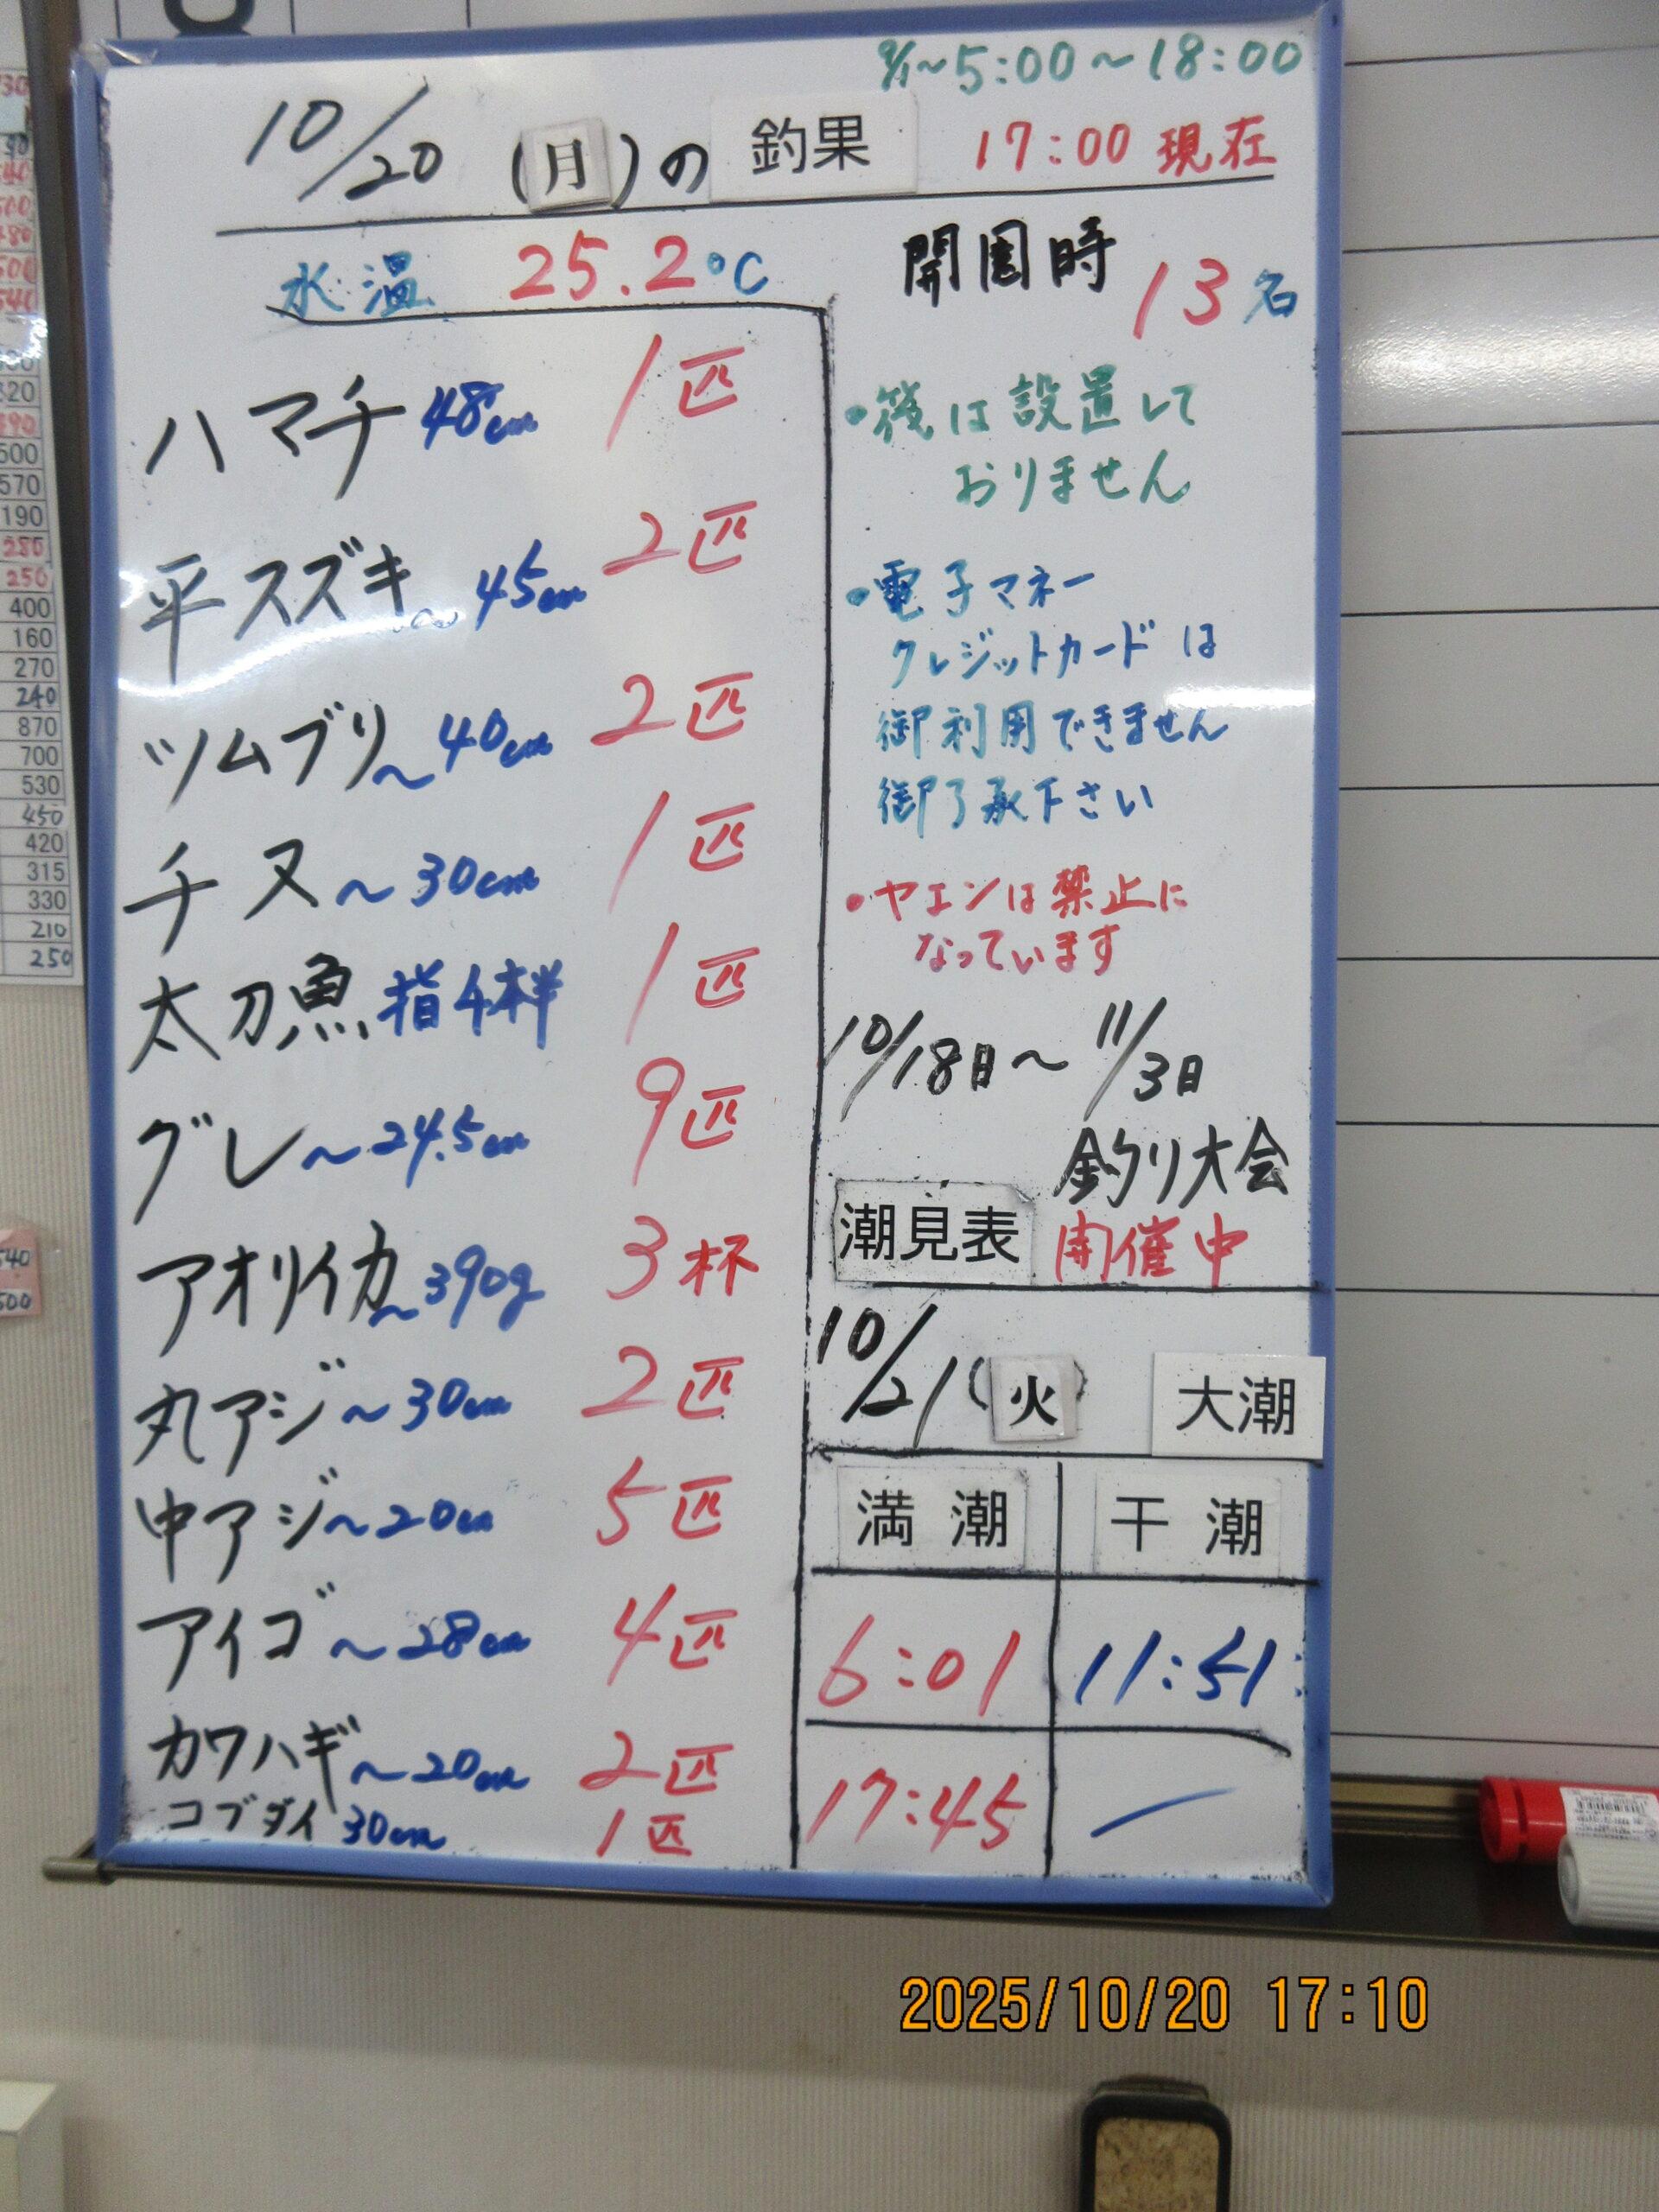 9/1~5:00~18:00
10/20(月)の 釣果 17:00 現在
水温 25.2℃
開園時 13名
ハマチ 48cm 1匹
平スズキ 45cm 2匹
ツムブリ~40cm 2匹
チヌ~30cm 1匹
太刀魚 指4本半 1匹
グレ~24.5cm 9匹
アオリイカ~390g 3杯
丸アジ~30cm 2匹
中アジ~20cm 5匹
アイゴ~28cm 4匹
カワハギ~20cm 2匹
コブダイ 30cm 1匹
・筏は設置して
おりません
・電子マネー
クレジットカードは
御利用できません
御了承下さい
・ヤエンは禁止に
なっています
10/18日~11/3日
釣り大会
開催中
潮見表
10/21(火) 大潮
満潮 干潮
6:01 11:51
17:45 —
30
90
40
500
480
500
540
320
500
570
190
250
250
400
160
270
240
870
700
530
450
420
315
330
210
250
540
500
2025/10/20 17:10